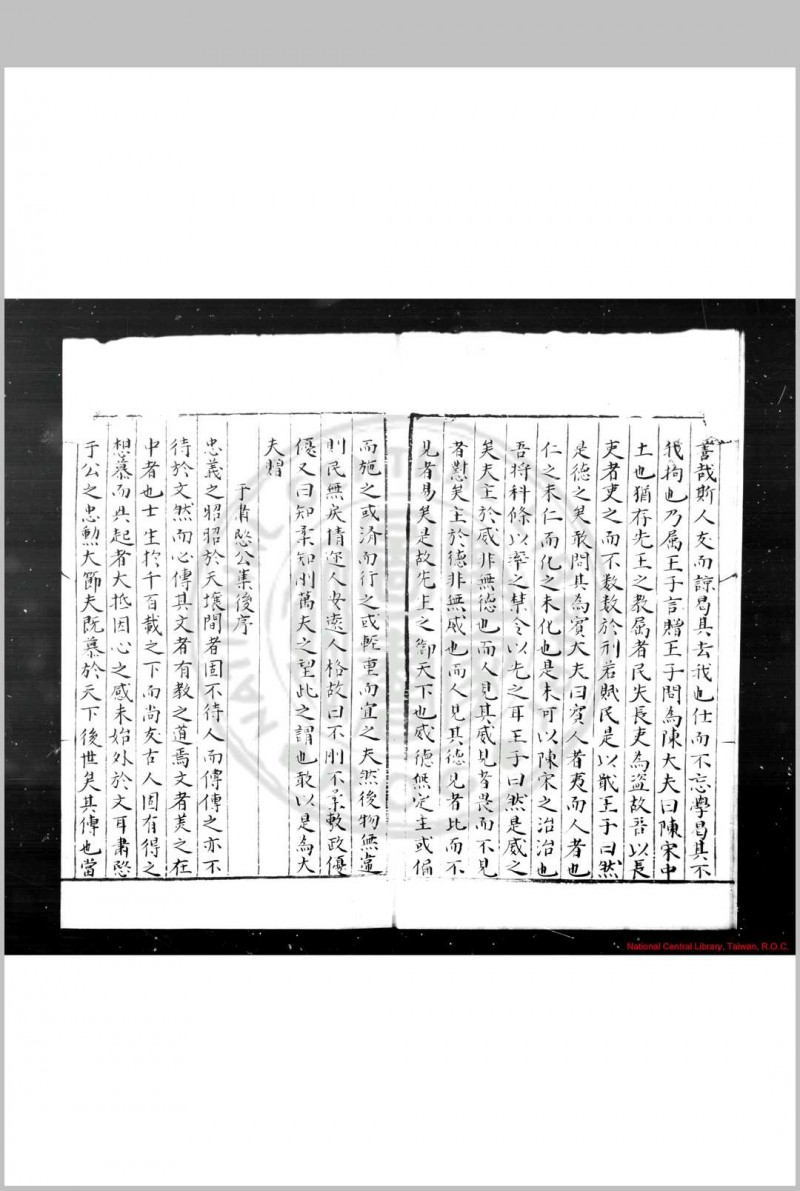 善哉斯人友而諒曷其去我也仕而不忘學曷其不
我拘也乃属王子言贈王子問為陳大夫曰陳宋中
土也猶存先王之教属者民失長吏為盜故吾以長
吏者吏之而不数数於刑若賦民是以戢王子曰然
是德之矣敢問其為賓大夫曰賓人者夷而人者也
仁之未仁而化之未化也是未可以陳宋之治治也
吾将科條以率之禁令以先之耳王子曰然是威之
矣夫主於威非無德也而人見其威見者畏而不見
者懟矣主於德非無威也而人見其德見者比而不
見者易矣是故先王之御天下也威德無定主或偏
而施之或済而行之或輕重而宜之夫然後物無違
則民無戾情迩人安遠人格故曰不刚不柔敷政優
優又曰知柔知刚萬夫之望此之謂也敢以是為大
夫贈
于肅愍公集後序
忠義之昭昭於天壤間者固不待人而傳傳之亦不
待於文然而必傳其文者有教之道焉文者美之在
中者也士生於千百載之下而尚友古人固有得之
想慕而興起者大抵因心之感未始外於文耳肅愍
于公之忠勲大節夫既慕於天下後世矣其傳也當
National Central Library, Taiwan, R.O.C.